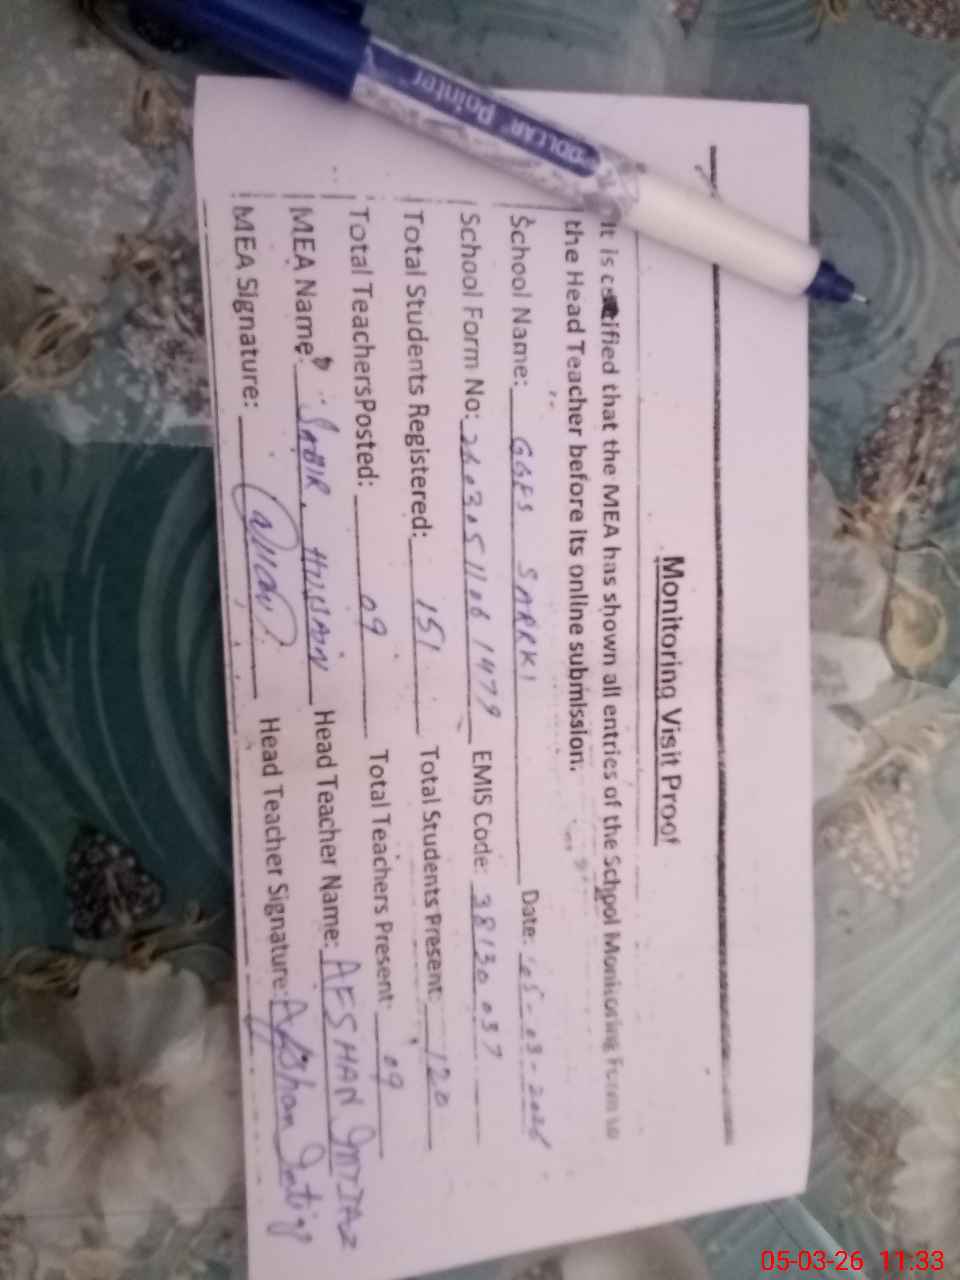 Monitoring Visit Proof
It is certified that the MEA has shown all entries of the School Monitoring Form to
the Head Teacher before its online submission.
School Name: GGES SARRKI Date: 05-03-2026
School Form No: 26030511061479 EMIS Code: 38130037
Total Students Registered: 151 Total Students Present: 120
Total TeachersPosted: 09 Total Teachers Present: 09
MEA Name: SABIR HUSSAIN Head Teacher Name: AFSHAN IMTIAZ
MEA Signature: Head Teacher Signature: Afshan
DOLLAR Pointer
05-03-26 11:33